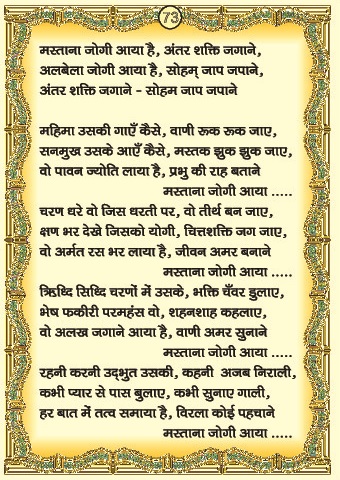 73
मस्ताना जोगी आया है, अंतर शक्ति जगाने,
अलबेला जोगी आया है, सोहम् जाप जपाने,
अंतर शक्ति जगाने - सोहम जाप जपाने
महिमा उसकी गाएँ कैसे, वाणी रूक रूक जाए,
सनमुख उसके आएँ कैसे, मस्तक झुक झुक जाए,
वो पावन ज्योति लाया है, प्रभु की राह बताने
मस्ताना जोगी आया .....
चरण धरे वो जिस धरती पर, वो तीर्थ बन जाए,
क्षण भर देखे जिसको योगी, चित्तशक्ति जग जाए,
वो अर्मत रस भर लाया है, जीवन अमर बनाने
मस्ताना जोगी आया .....
ऋिध्दि सिध्दि चरणों में उसके, भक्ति चँवर डुलाए,
भेष फकीरी परमहंस वो, शहनशाह कहलाए,
वो अलख जगाने आया है, वाणी अमर सुनाने
मस्ताना जोगी आया .....
रहनी करनी उद्‌भुत उसकी, कहनी अजब निराली,
कभी प्यार से पास बुलाए, कभी सुनाए गाली,
हर बात में तत्व समाया है, विरला कोई पहचाने
मस्ताना जोगी आया .....